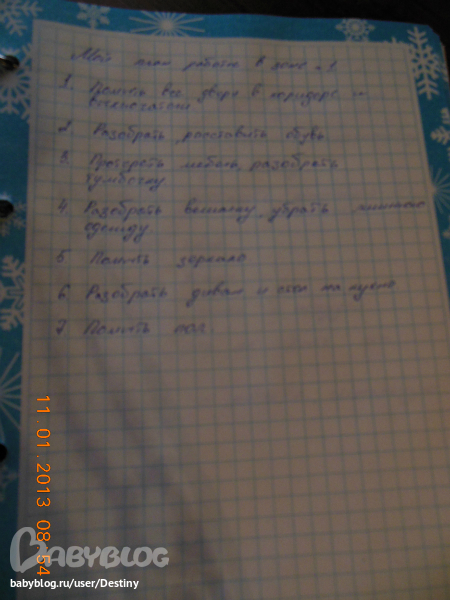 Мой план работы в зоне №1
1. Помыть все двери в коридоре и
выключатели
2. Разобрать, расставить обувь
3. Протереть мебель, разобрать
тумбочку
4. Разобрать вешалку, убрать лишнюю
одежду
5. Помыть зеркало
6. Разобрать диван и стол на кухне
7. Помыть пол.
11.01.2013 08:54
BABYBLOG
babyblog.ru/user/Destiny